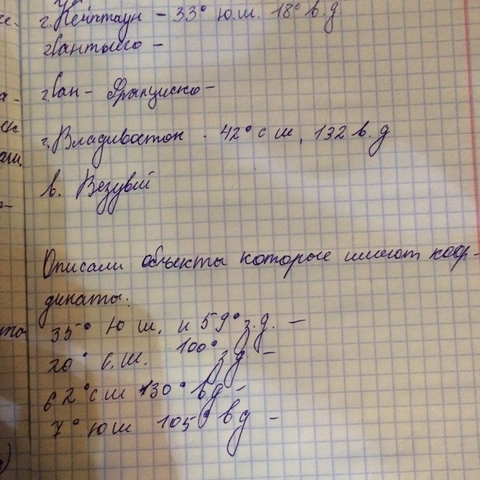 г. Кейптаун - 33° ю.ш. 18° в.д
г. Сантьяго -
г. Сан - Франциско -
г. Владивосток . 42° с ш, 132 в. д
в. Везувий
Описали объекты которые имеют коор-
динаты.
35° Ю ш, и 59° з.д. -
20° с. ш. 100° з д -
62° с ш 130° в д -
7° ю ш 105° в д -